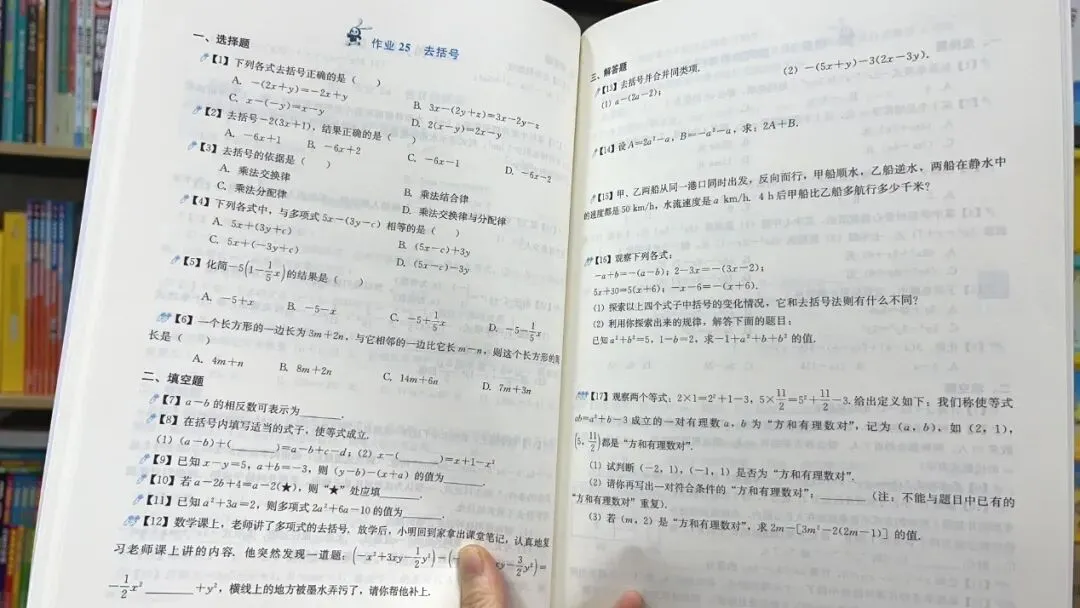 作业 25 去括号
一、选择题
【1】下列各式去括号正确的是（ ）
A. －(2x＋y)＝－2x＋y
B. 3x－(2y＋z)＝3x－2y－z
C. x－(－y)＝x－y
D. 2(x－y)＝2x－y
【2】去括号－2(3x＋1)，结果正确的是（ ）
A. －6x＋1
B. －6x＋2
C. －6x－1
D. －6x－2
【3】去括号的依据是（ ）
A. 乘法交换律
B. 乘法结合律
C. 乘法分配律
D. 乘法交换律与分配律
【4】下列各式中，与多项式 5x－(3y－c) 相等的是（ ）
A. 5x＋(3y＋c)
B. (5x－c)＋3y
C. 5x＋(－3y＋c)
D. (5x－c)－3y
【5】化简－5(1－1/5x)的结果是（ ）
A. －5＋x
B. －5－x
C. －5＋1/5x
D. －5－1/5x
【6】一个长方形的一边长为 3m＋2n，与它相邻的一边比它长 m－n，则这个长方形的周
长是（ ）
A. 4m＋n
B. 8m＋2n
C. 14m＋6n
D. 7m＋3n
二、填空题
【7】a－b 的相反数可表示为______.
【8】在括号内填写适当的式子，使等式成立.
(1)（a－b)＋(______)＝a－b＋c－d；(2) x－(______)＝x＋1－x²
【9】已知 x－y＝5，a＋b＝－3，则 (y－b)－(x＋a) 的值为______.
【10】若 a－2b＋4＝a－2(★)，则“★”处应填______.
【11】已知 a²＋3a＝2，则多项式 2a²＋6a－10 的值为______.
【12】数学课上，老师讲了多项式的去括号. 放学后，小明回到家拿出课堂笔记，认真地复
习老师课上讲的内容. 他突然发现一道题：(－x²＋3xy－1/2y²)－(－ xy－3/2y²)＝
－1/2x²______＋y²，横线上的地方被墨水弄污了，请你帮他补上.
三、解答题
【13】去括号并合并同类项.
(1) a－(2a－2)；
(2) －(5x＋y)－3(2x－3y).
【14】设 A＝2a²－a，B＝－a²－a，求：2A＋B.
【15】甲、乙两船从同一港口同时出发，反向而行，甲船顺水，乙船逆水，两船在静水中
的速度都是 50 km/h，水流速度是 a km/h. 4 h 后甲船比乙船多航行多少千米？
【16】观察下列各式：
－a＋b＝－(a－b)；2－3x＝－(3x－2)；
5x＋30＝5(x＋6)；－x－6＝－(x＋6).
(1) 探索以上四个式子中括号的变化情况，它和去括号法则有什么不同？
(2) 利用你探索出来的规律，解答下面的题目：
已知 a²＋b²＝5，1－b＝2，求－1＋a²＋b＋b² 的值.
【17】观察两个等式：2×1＝2²＋1－3，5×11/2＝5²＋11/2－3. 给出定义如下：我们称使等式
ab＝a²＋b－3 成立的一对有理数 a，b 为“方和有理数对”，记为 (a，b)，如 (2，1)，
(5，11/2) 都是“方和有理数对”.
(1) 试判断 (－2，1)，(－1，1) 是否为“方和有理数对”.
(2) 请你再写出一对符合条件的“方和有理数对”：______（注：不能与题目中已有的
“方和有理数对”重复).
(3) 若 (m，2) 是“方和有理数对”，求 2m－[3m²－2(2m－1)] 的值.